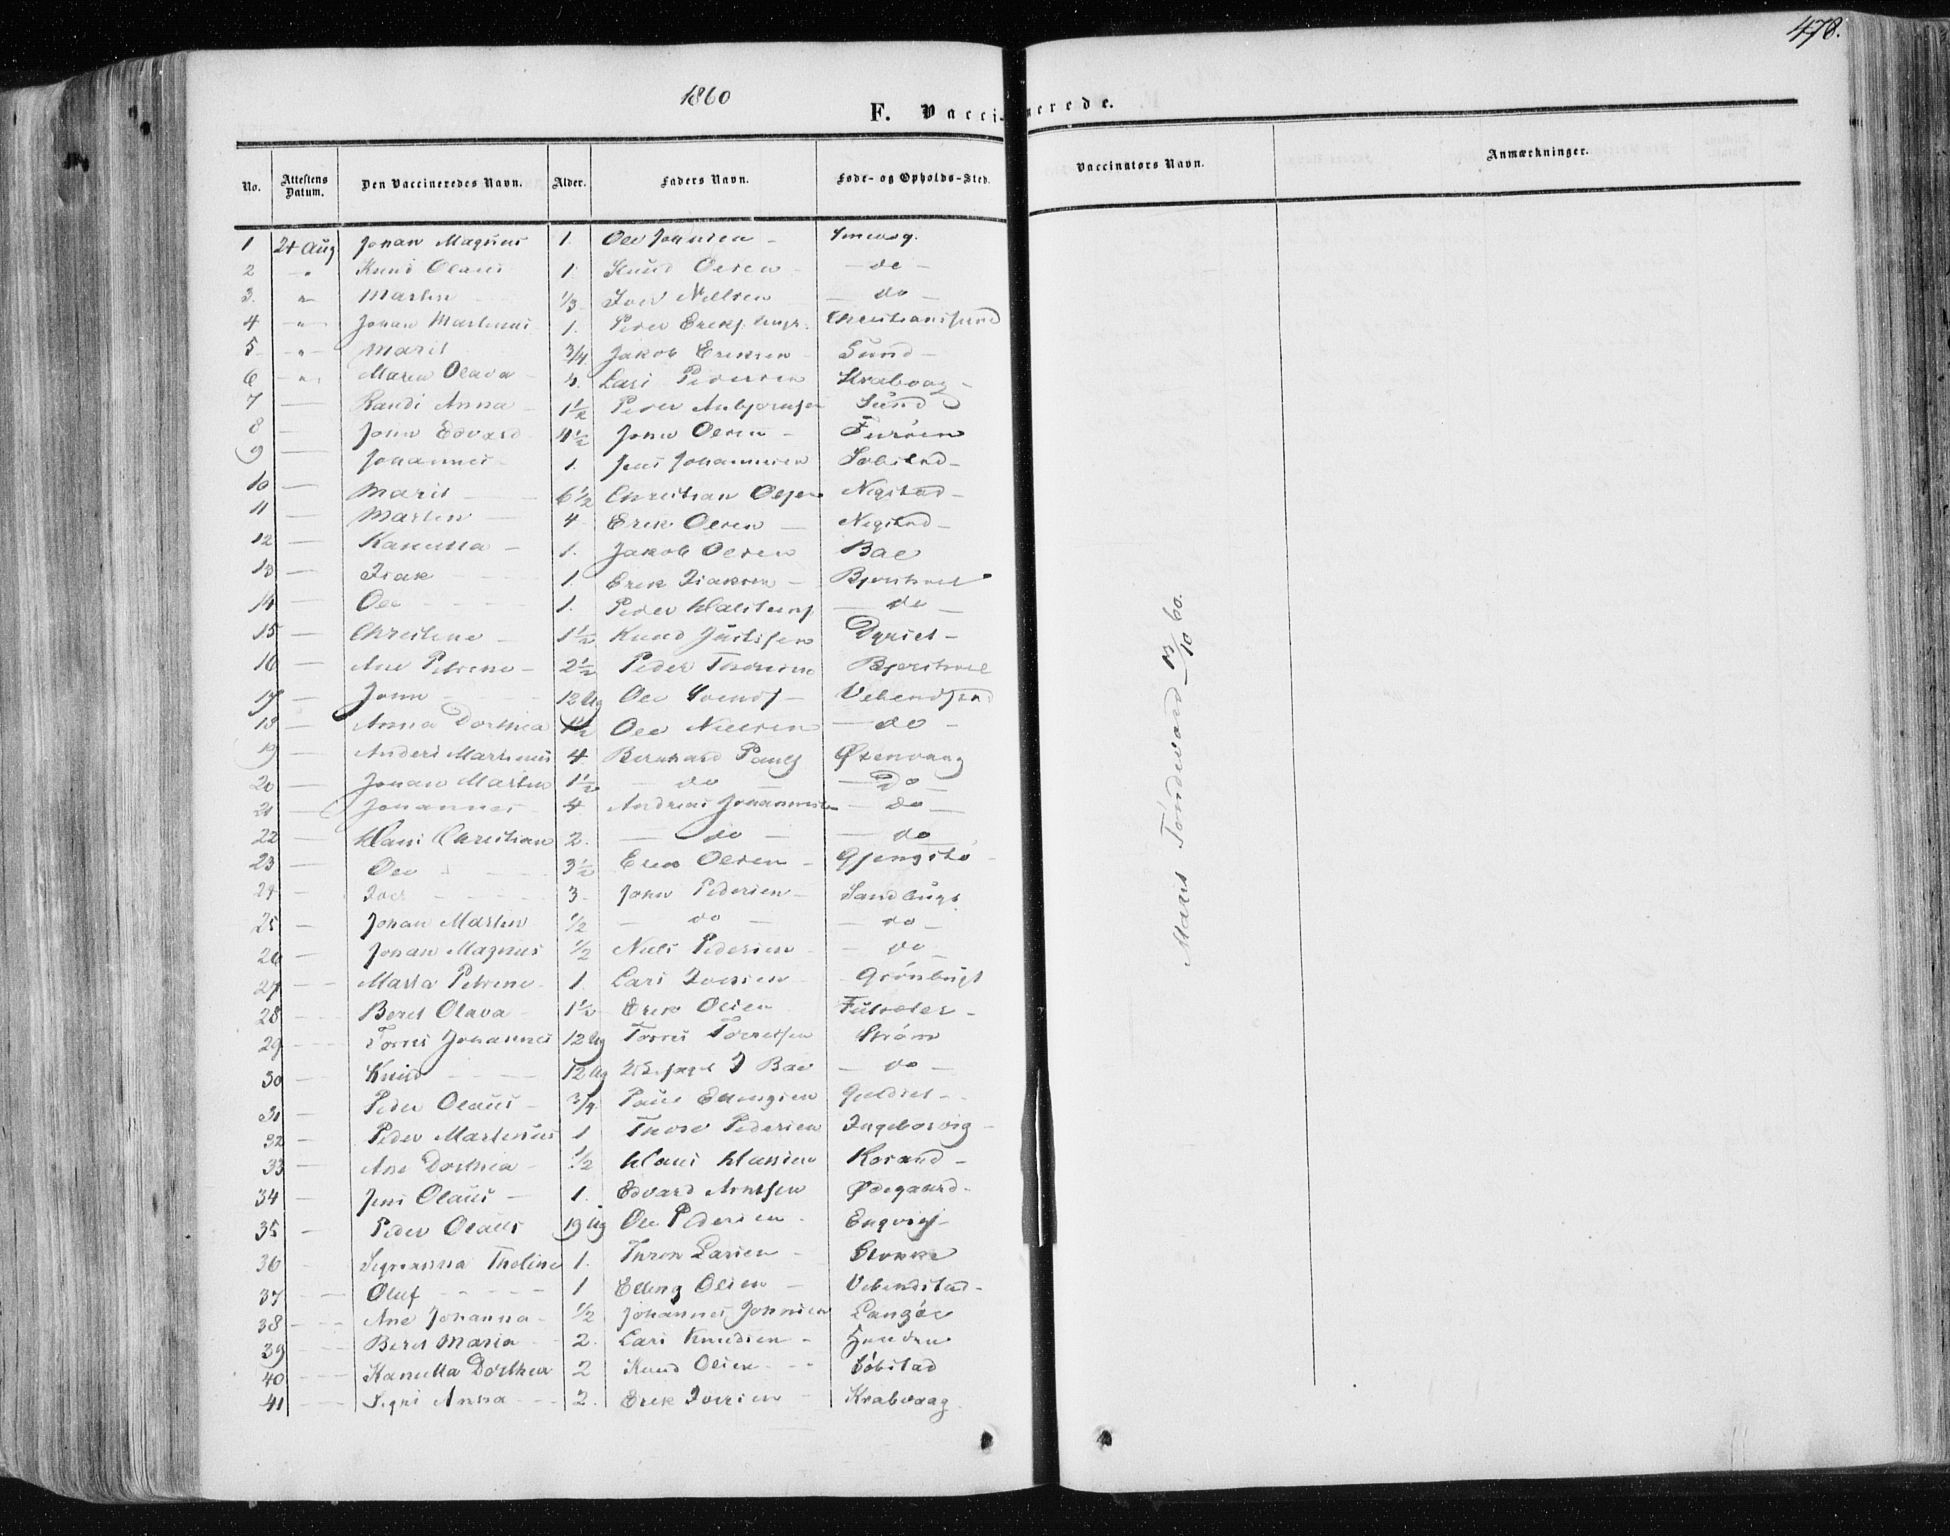 478.
1860
F. Vaccinerede.
No. Attestens Datum. Den Vaccineredes Navn. Alder. Faders Navn. Føde- og Opholds-Sted. Vaccinators Navn. Anmærkninger.
1 24 Aug Johan Magnus 1. Ole Johnsen
2 " Knud Olaus 1 Knud Olsen - do -
3. " Martin 1/3 Iver Nilsen - do -
4 " Johan Martinus 1. Peder Christiansund
5 " Marit 3/4 Jakob Eriksen - Sund -
6 " Maren Olava Lars Pedersen Kravaag -
7 — Randi Anna 1½ Peder Anbjørnsen Sund
8 — John Edvard 4½ John Olsen - Furøen
9 — Johannes 1. Jens Johannesen Sobstad -
10 — Marit 6½ Christian Olsen Negstad -
11 — Martin 4 Erik Olsen — Negstad -
12 — Kanutta - 1. Jakob Olsen Bae
13 — Isak 1. Erik Isaksen -
14 — Ole 1. Peder - do -
15 — Christine 1½ Knud Justifsen Dyrset -
16 — Ane Petrine - 2½ Peder
17 — John 12 Ug Ole Svends -
18 — Anna Dorthea 1½ Ole Nielsen - do -
19 — Anders Martinus 4 Bernhard Pauls Øxenvaag
20 — Johan Martin 1½ - do - Do -
21 — Johannes 4 Andreas Johannesen - do -
22 — Hans Christian 2. - do - - do
23 — Ole 3½ Erik Olsen - Gjengstø
24 — Iver 3 - John Pedersen - Sandbugt
25 — Johan Martin ½ - do - - do -
26 — Johan Magnus ½ Niels Pedersen - do -
27 — Marta Petrine 1. Lars Iversen Grønbugt
28 Beret Olava 1½ Erik Olsen Futvater -
29 Torris Johannes 12 Ug Torris Torrissen Strøm
30 Knud 12 Ug Bae - do -
31 Peder Olaus - 3/4 Paul Ellingsen
32 — Peder Martinus 1 Thore Pedersen Ingeborvig -
33 — Ane Dorthea - ½ Hans Hansen Rosand -
34 — Jens Olaus - 1. Edvard Arntsen Ødegaard -
35 — Peder Olaus 19 Ug Ole Pedersen Engvig -
36 Signanna Tholine 1. Thron Larsen - Stokke
37 Oluf 1 Elling Olsen - Vebenstad -
38 Ane Johanna - ½ Johannes Johnsen Langøe
39 Beret Maria 2. Lars Knudsen -
40 Kanutta Dorthea 2 Knud Olsen Sobstad
41 Signi Anna 2. Erik Iversen Kravaag
Marit Tøndevold 13/10 60.